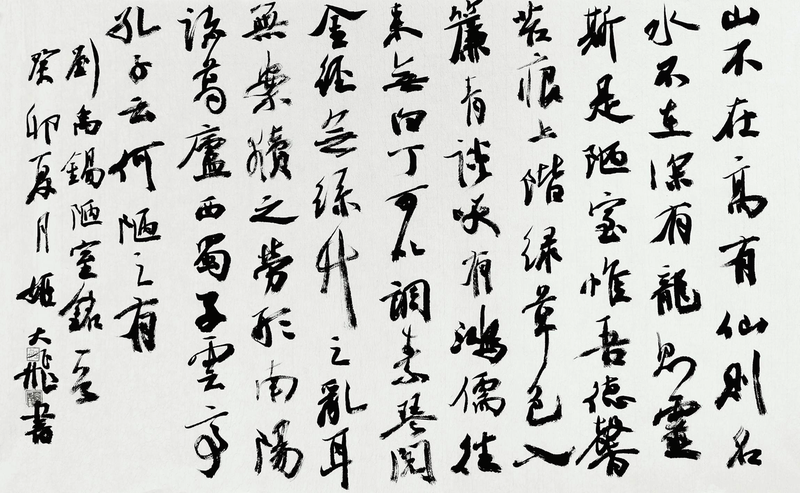 山不在高有仙則名
水不在深有龍則靈
斯是陋室惟吾德馨
苔痕上階绿草色入
簾青談咲有鴻儒往
来無白丁可以調素琴閱
金經無絲竹之亂耳
無案牘之勞形南陽
諸葛廬西蜀子雲亭
孔子云何陋之有
劉禹錫陋室銘
癸卯夏月姬大書